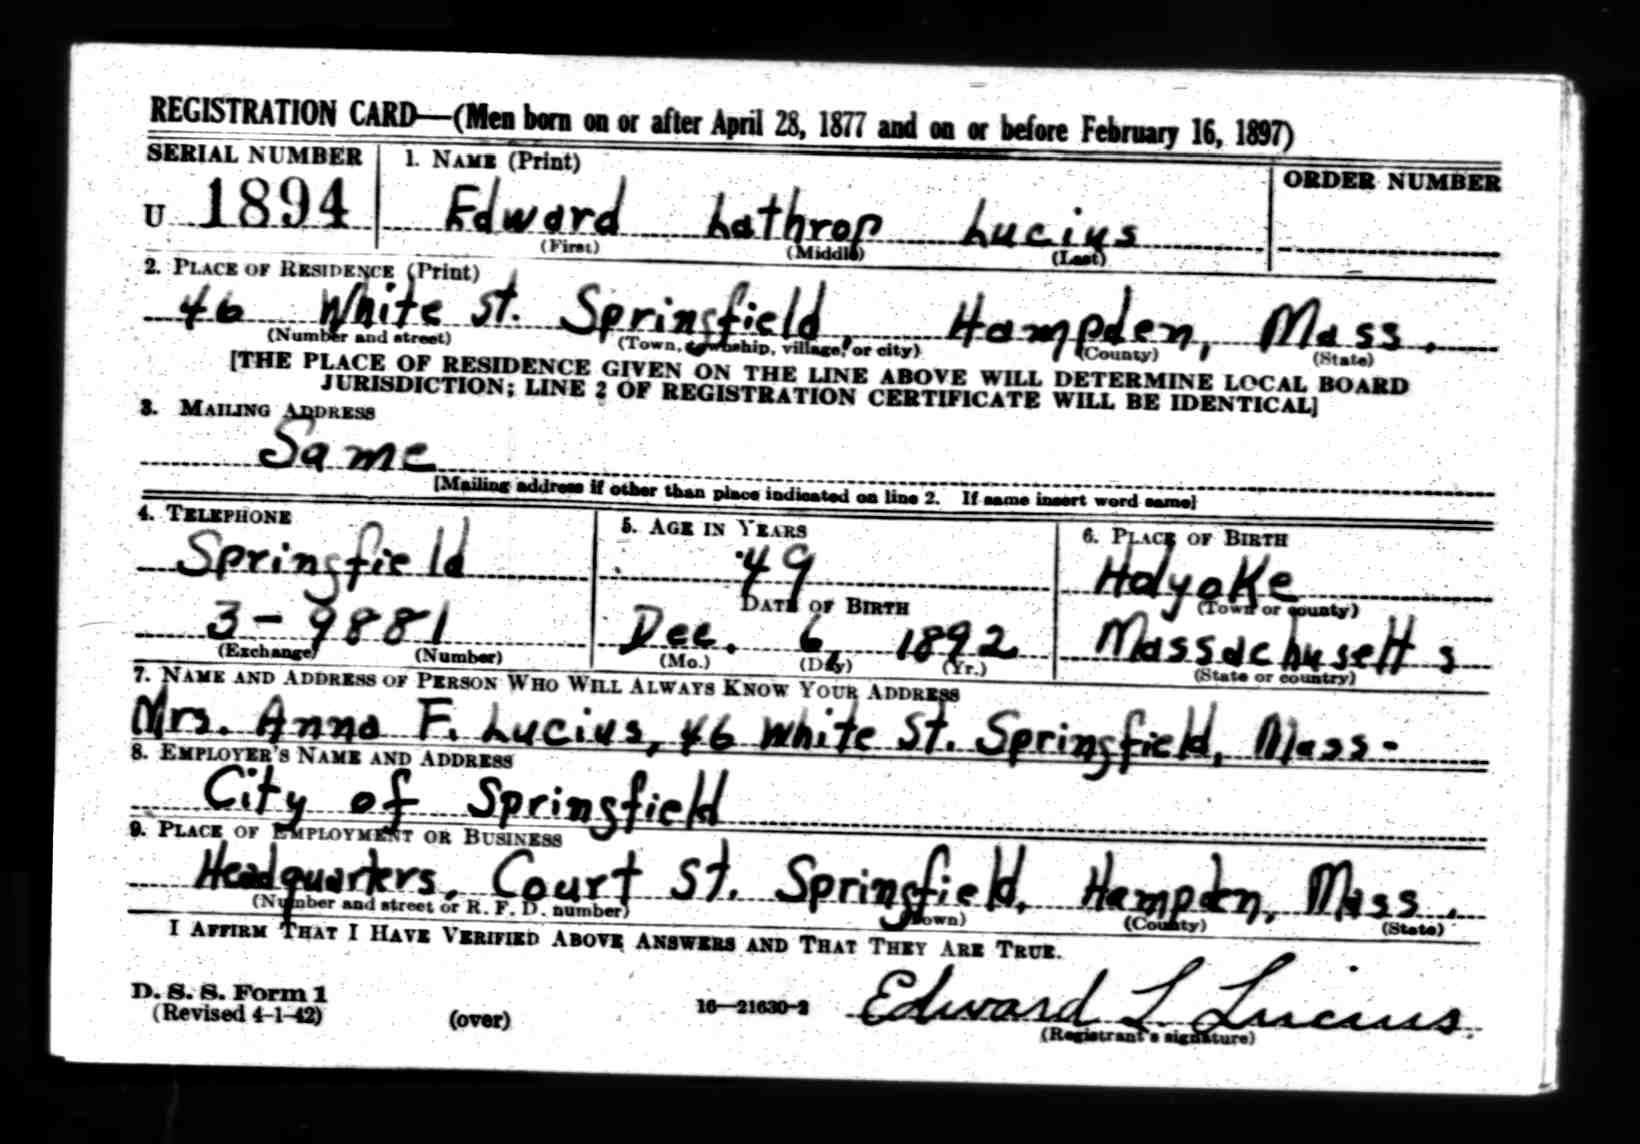 REGISTRATION CARD—(Men born on or after April 28, 1877 and on or before February 16, 1897)
SERIAL NUMBER 1. NAME (Print) ORDER NUMBER
U 1894 Edward Lathrop Lucius
(First) (Middle) (Last)
2. PLACE OF RESIDENCE (Print)
46 White St. Springfield, Hampden, Mass.
(Number and street) (Town, township, village, or city) (County) (State)
[THE PLACE OF RESIDENCE GIVEN ON THE LINE ABOVE WILL DETERMINE LOCAL BOARD
JURISDICTION; LINE 2 OF REGISTRATION CERTIFICATE WILL BE IDENTICAL]
3. MAILING ADDRESS
Same
[Mailing address if other than place indicated on line 2. If same insert word same]
4. TELEPHONE 5. AGE IN YEARS 6. PLACE OF BIRTH
Springfield 49 Holyoke
DATE OF BIRTH (Town or county)
3-9881 Dec. 6, 1892 Massachusetts
(Exchange) (Number) (Mo.) (Day) (Yr.) (State or country)
7. NAME AND ADDRESS OF PERSON WHO WILL ALWAYS KNOW YOUR ADDRESS
Mrs. Anna F. Lucius, 46 White St. Springfield, Mass-
8. EMPLOYER'S NAME AND ADDRESS
City of Springfield
9. PLACE OF EMPLOYMENT OR BUSINESS
Headquarters, Court St. Springfield, Hampden, Mass.
(Number and street or R. F. D. number) (Town) (County) (State)
I AFFIRM THAT I HAVE VERIFIED ABOVE ANSWERS AND THAT THEY ARE TRUE.
D. S. S. Form 1
(Revised 4-1-42) (over) 16—21630-2 Edward L Lucius.
(Registrant's signature)